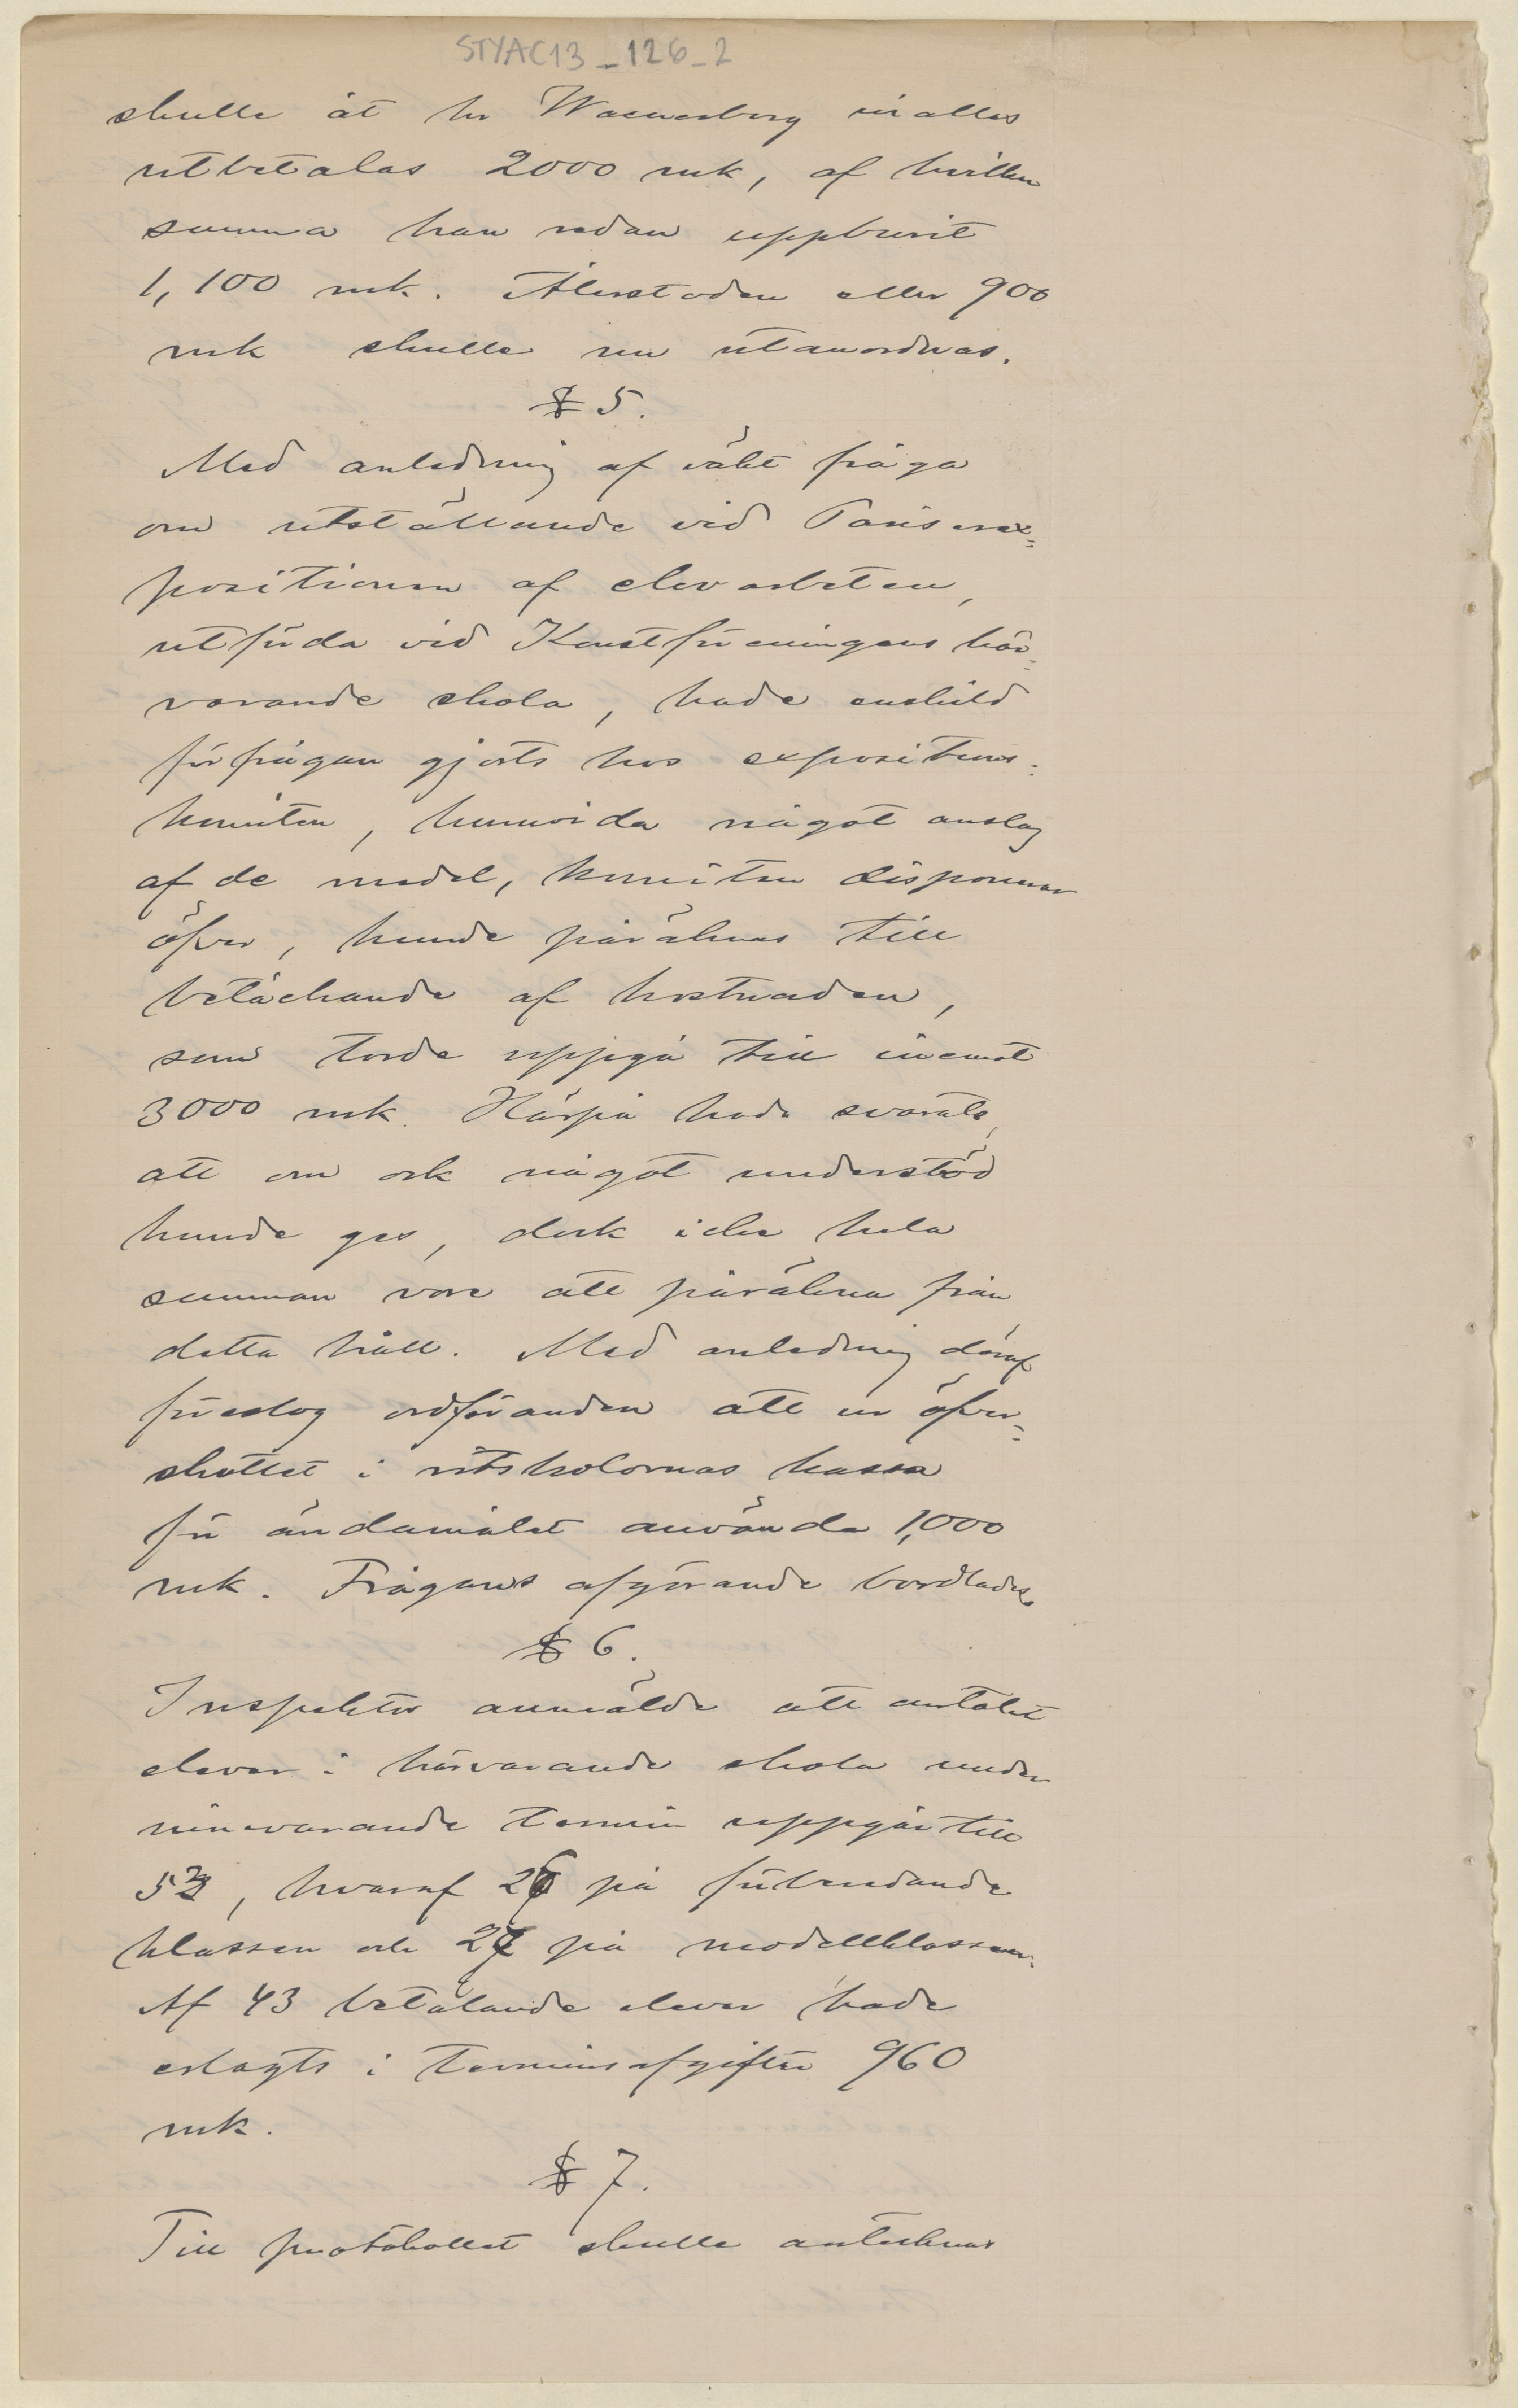 STYAC13_126_2
skulle åt hr Waenerberg in alles
utbetalas 2000 mk, af hvilken
summa han redan uppburit
1,100 mk. Återstoden eller 900
mk skulle nu utanordnas.
§ 5.
Med anledning af väkt fråga
om utställande vid Pariserex-
positionen af elevarbeten,
utförda vid Konstföreningens här-
varande skola, hade enskild
förfrågan gjorts hos expositions-
komitén, huruvida något anslag
af de medel, komitén disponerar
öfver, kunde påräknas till
betäckande af kostnaden,
som torde uppgå till inemot
3000 mk. Härpå hade svarats,
att om ock något understöd
kunde ges, dock icke hela
summan vore att påräkna från
detta håll. Med anledning däraf
föreslog ordföranden att ur öfver-
skottet i ritskolornas kassa
för ändamålet använda 1,000
mk. Frågans afgörande bordlades.
§ 6.
Inspektor anmälde att antalet
elever i härvarande skola under
nuvarande termin uppgår till
53, hvaraf 26 på förberedande
klassen och 27 på modellklassen.
Af 43 betalande elever hade
erlagts i terminsafgifter 960
mk.
§ 7.
Till protokollet skulle antecknas